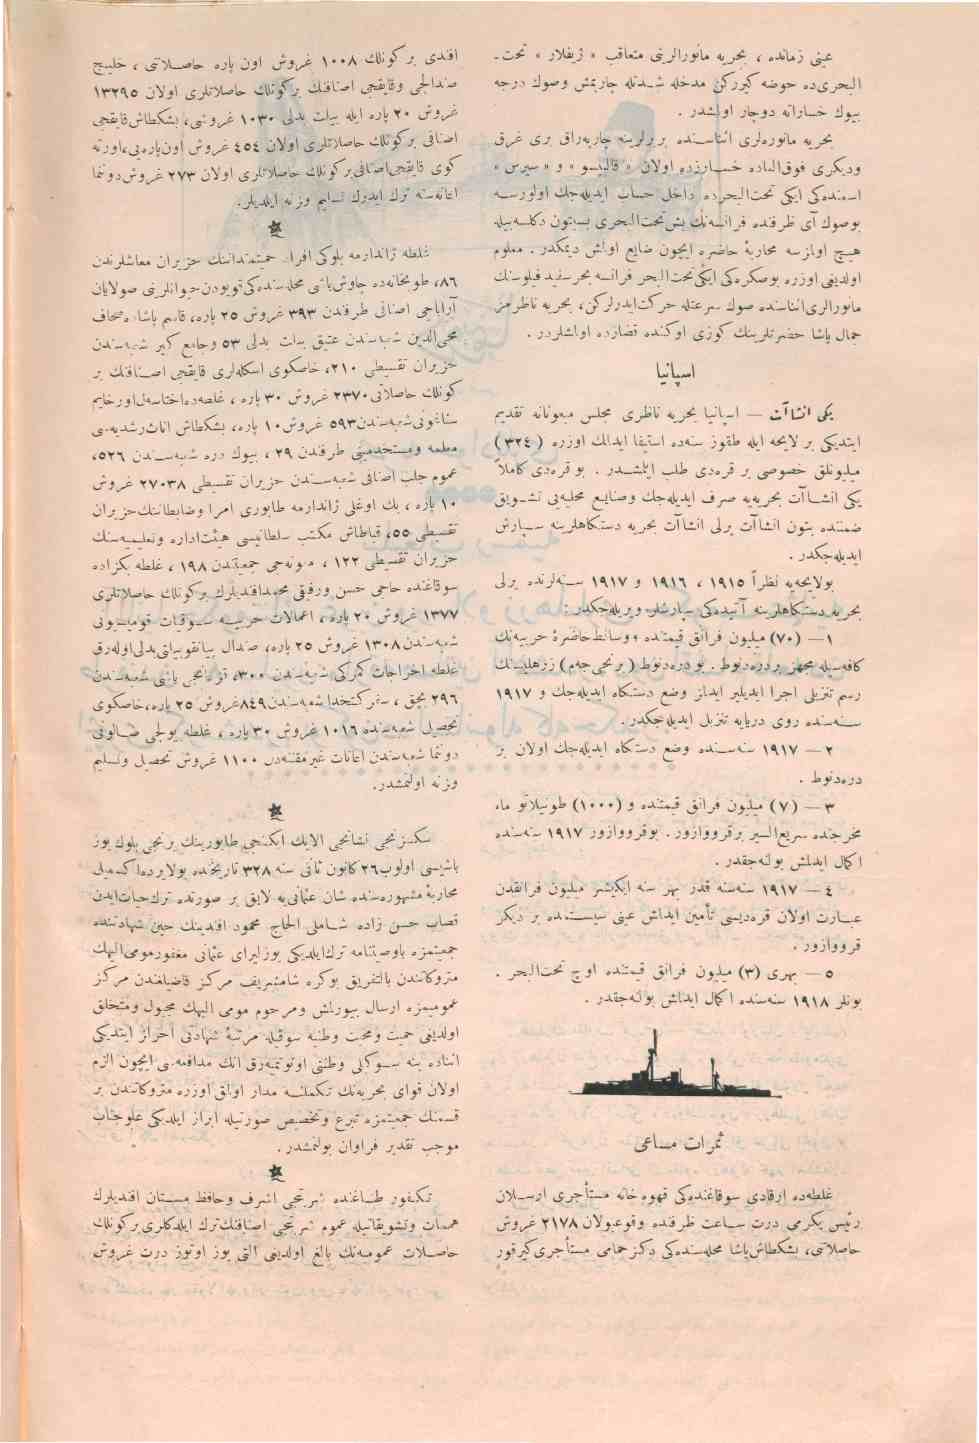 عینی زمانده ، بحریه مانورالرینی متعاقب « ژیفلار » تحت‌ـ
البحری‌ده حوضه کیررکن مدخله شدتله چاربمش وصوك درجه
بیوك خساراته دوچار اولمشدر .
بحریه مانوره‌لری اثناسنده بربرلرینه چاربه‌راق بری غرق
ودیکری فوق‌العاده خسارزده اولان « قالیپسو » و « سیرس »
اسمنده‌کی ایکی تحت‌البحرده داخل حساب ایدیله‌جك اولورسه
بوصوك آی ظرفنده فرانسه‌نك بش‌تحت‌البحری بستون دکلسه‌بیله
هیچ اولمازسه محاربهٔ حاضره ایچون ضایع اولمش دیمکدر . معلوم
اولدیغی اوزره بوصکره‌کی ایکی‌تحت‌البحر فرانسه بحرسفید فیلوسنك
مانورالری‌اثناسنده صوك سرعتله حرکت‌ایدرلرکن، بحریه ناظرمز
جمال پاشا حضرتلرینك کوزی اوکنده قضازده اولمشلردر .
اسپانیا
یکی انشاآت — اسپانیا بحریه ناظری مجلس مبعوثانه تقدیم
ایتدیکی بر لایحه ایله طقوز سنه‌ده استیفا ایدلمك اوزره (٣٢٤)
میلیونلق خصوصی بر قره‌دی طلب ایتمشدر . بو قره‌دی کاملاً
یکی انشاآت بحریه‌یه صرف ایدیله‌جك وصنایع محلیه‌یی تشویق
ضمننده بتون انشاآت یرلی انشاآت بحریه دستکاهلرینه سپارش
ایدیله‌جکدر .
بولایحه‌یه نظراً ١٩١٥ ، ١٩١٦ و ١٩١٧ سنه‌لرنده یرلی
بحریه دستکاهلرینه آتیده‌کی سپارشلر ویریله‌جکدر :
١ — (٧٠) میلیون فرانق قیمتنده ؛ وسائط حاضرهٔ حربیه‌نك
کافه‌سیله مجهز بردره‌دنوط . بو دره‌دنوط (برنجی جهم) زرهلیسنك
رسم تنزیلی اجرا ایدیلیر ایدلمز وضع دستکاه ایدیله‌جك و ١٩١٧
سنه‌سنده روی دریایه تنزیل ایدیله‌جکدر .
٢ — ١٩١٧ سنه‌سنده وضع دستکاه ایدیله‌جك اولان بر
دره‌دنوط .
٣ — (٧) میلیون فرانق قیمتنده و (١٠٠٠) طونیلاتو ماء
مخرجنده سریع‌السیر برقرووازور . بوقرووازور ١٩١٧ سنه‌سنده
اکمال ایدلمش بولنه‌جقدر .
٤ — ١٩١٧ سنه‌سنه قدر بهر سنه ایکیشر میلیون فرانقدن
عبارت اولان قره‌دیسی تأمین ایدلمش عینی سیستمده بر دیکر
قرووازور .
٥ — بهری (٣) میلیون فرانق قیمتنده اوچ تحت‌البحر .
بونلر ١٩١٨ سنه‌سنده اکمال ایدلمش بولنه‌جقدر .
ثمرات مساعی
غلطه‌ده ارقادی سوقاغنده‌کی قهوه خانه مستأجری ارسلان
رئیس یکرمی درت ساعت ظرفنده وقوعبولان ٢١٧٨ غروش
حاصلاتی، بشکطاش‌پاشا محله‌سنده‌کی دکز حمامی مستأجری‌کیرقور
افندی بر کونلك ١٠٠٨ غروش اون پاره حاصلاتی ، خلیج
صندالجی وقایقجی اصنافنك برکونلك حاصلاتلری اولان ١٣٢٩٥
غروش ٢٠ پاره ایله بیلت بدلی ١٠٣٠ غروشی، بشکطاش‌قایقجی
اصنافی برکونلك حاصلاتلری اولان ٤٥٤ غروش اون‌پاره‌یی،اورته
کوی قایقجی‌اصنافی‌برکونلك حاصلاتلری اولان ٢٧٣ غروش‌دوننما
اعانه‌سنه ترك ایدرك تسلیم وزنه ایلدیلر.
غلطه ژاندارمه بلوکی افراد حمیتمنداننك حزیران معاشلرندن
٨٦، طوبخانه‌ده چاوش‌باشی محله‌سنده‌کی‌قویودن‌حیوانلرینی صولایان
آراباجی اصنافی طرفندن ٣٩٣ غروش ٢٥ پاره، قاسم پاشاده صحاف
محی‌الدین شعبه‌سندن عتیق بیلت بدلی ٥٣ وجامع کبیر شعبه‌سندن
حزیران تقسیطی ٢١٠، خاصکوی اسکله‌لری قایقجی اصنافنك بر
کونلك حاصلاتی ٢٣٧٠ غروش ٣٠ پاره ،
شعبه‌سندن ٥٩٣ غروش ١٠ پاره، بشکطاش اناث‌رشدیه‌سی
معلمه ومستخدمینی طرفندن ٢٩ ، بیوك دره شعبه‌سندن ٥٢٦،
عموم جلب اصنافی شعبه‌سندن حزیران تقسیطی ٢٧٠٣٨ غروش
١٠ پاره ، بك اوغلی ژاندارمه طابوری امرا وضابطاننك‌حزیران
تقسیطی ٥٥، قباطاش مکتب سلطانیسی هیئت‌اداره وتعلیمیه‌سنك
حزیران تقسیطی ١٢٢ ، جمعیتندن ١٩٨ ، غلطه بکزاده
سوقاغنده حاجی حسن ورفیقی محمدافندیلرك برکونلك حاصلاتلری
١٣٧٧ غروش ٢٠ پاره ، اعمالات حربیه سوقیات قومیسیونی
شعبه‌سندن ١٣٠٨ غروش ٢٥ پاره، صندال بدلی‌اوله‌رق
غلطه اخراجات کمرکی شعبه‌سندن ٣٠٠، باشی شعبه‌سندن
٢٩٦ بچق ، شعبه‌سندن ٨٤٩ غروش ٢٥ پاره،خاصکوی
تحصیل شعبه‌سنده ١٠١٦ غروش ٣٠ پاره ، غلطه یولجی صالونی
دوننما شعبه‌سندن اعانات غیرمقننه‌دن ١١٠٠ غروش تحصیل وتسلیم
وزنه اولنمشدر.
سکسزنجی نشانجی الاینك ایکنجی طابورینك برنجی بلوك یوز
باشیسی اولوب ٢٦ کانون ثانی سنه ٣٢٨ تاریخنده بولایرده‌اکسمیل
محاربهٔ مشهوره‌سنده شان عثمانی‌یه لایق بر صورتده ترك‌حیات‌ایدن
قصاب حسن زاده شاملی الحاج محمود افندینك حین شهادتنده
جمعیتمزه باوصیتنامه ترك‌ایلدیکی یوزلیرای عثمانی مغفورمومی‌الیهك
متروکاتندن بالتفریق بوکره شام‌شریف مرکز قاضیلغندن مرکز
عمومیمزه ارسال بیورلمش ومرحوم مومی الیهك مجبول ومتخلق
اولدیغی حمیت ومحبت وطنیه سوقیله مرتبهٔ شهادتی احراز ایتدیکی
اثناده ینه سوکیلی وطننی اونوتمیه‌رق انك مدافعه‌سی‌ایچون الزم
اولان قوای بحریه‌نك تکملنه مدار اولمق اوزره متروکاتندن بر
قسمنك جمعیتمزه تبرع وتخصیص صورتیله ابراز ایلدیکی علوجناب
موجب تقدیر فراوان بولنمشدر .
تکفور طاغنده شربتجی اشرف وحافظ مستان افندیلرك
همات وتشویقاتیله عموم شربتجی اصنافنك‌ترك ایلدکلری برکونلك
حاصلات عمومیه‌نك بالغ اولدیغی التی یوز اوتوز درت غروش